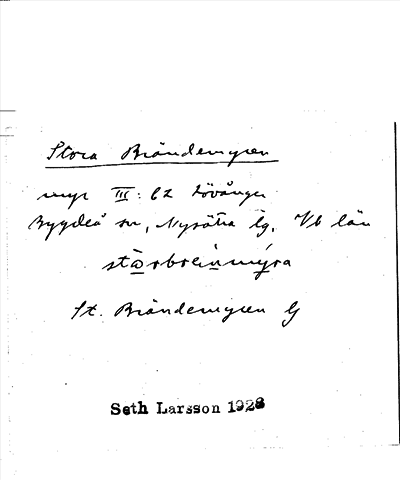 Stora Brändemyren
myr III: C2 Lövånger
Bygdeå sn, Nysätra tg, Vb län
St. Brändemyren G
Seth Larsson 1928